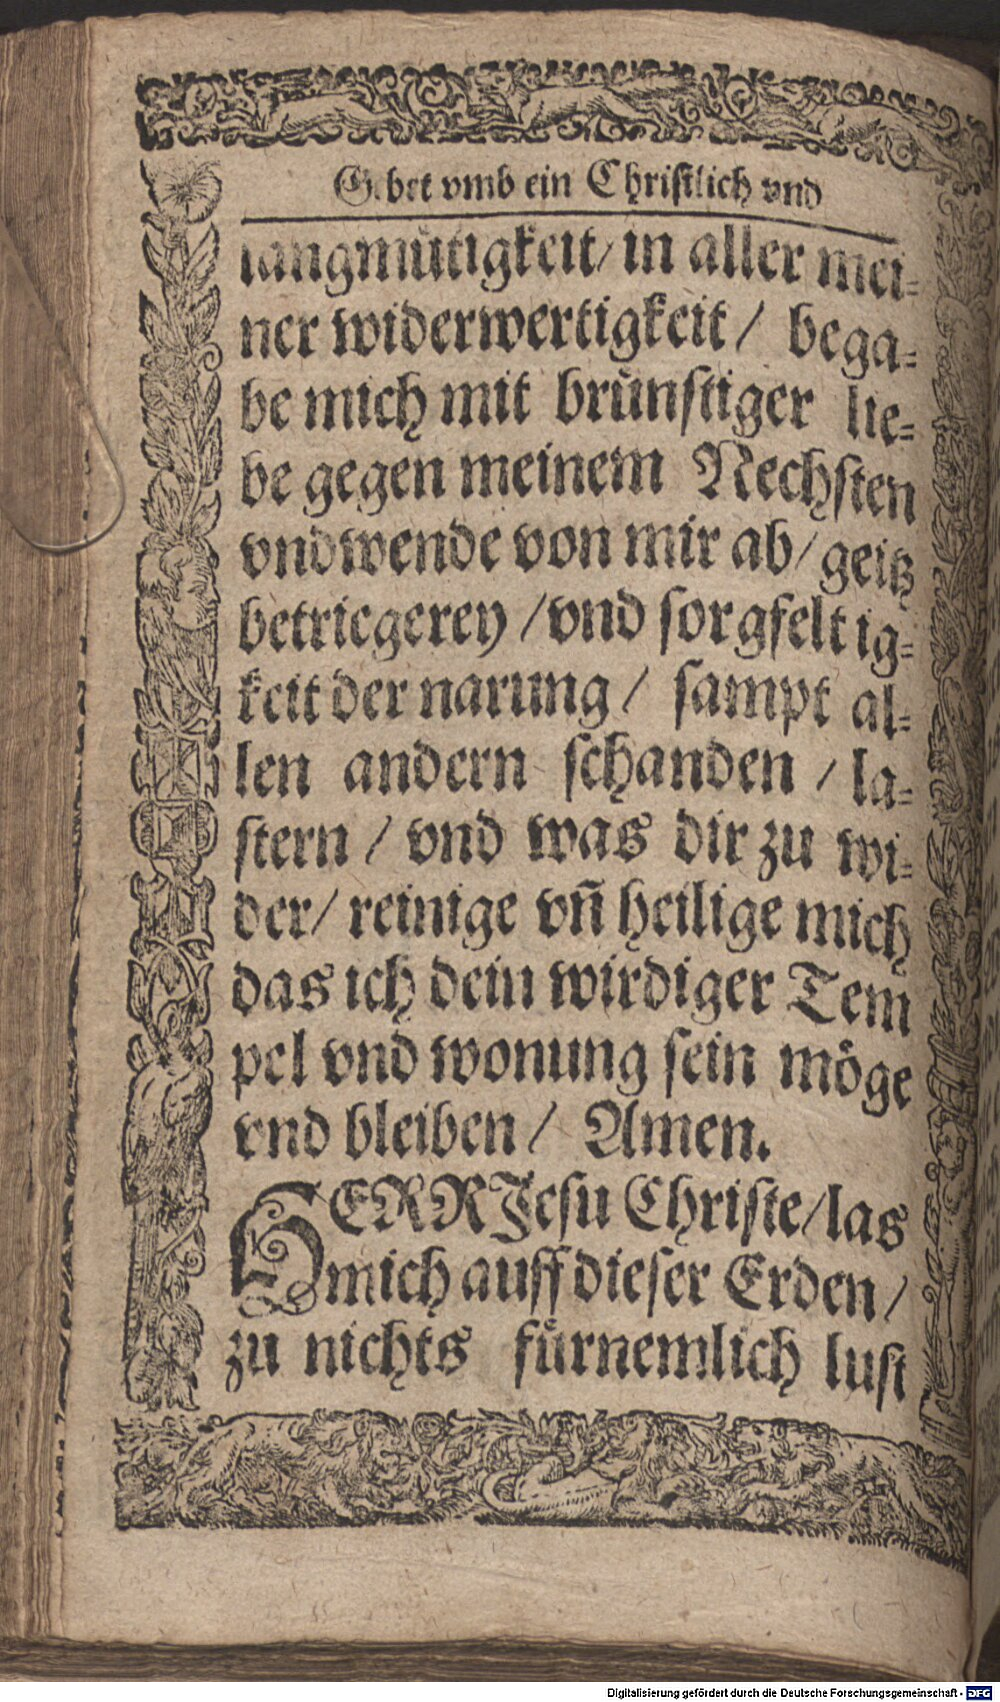 Gebet vmb ein Christlich vnd
langmütigkeit/ in aller mei-
ner widerwertigkeit / bega-
be mich mit brünstiger lie-
be gegen meinem Nechsten
vnd wende von mir ab/ geitz
betriegerey /vnd sorgfeltig-
keit der narung / sampt al-
len andern schanden / la-
stern / vnd was dir zu wi-
der/ reinige vñ heilige mich
das ich dein wirdiger Tem
pel vnd wonung sein möge
vnd bleiben / Amen.
HERR Jesu Christe/las
mich auff dieser Erden /
zu nichts fürnemlich lust
Digitalisierung gefördert durch die Deutsche Forschungsgemeinschaft - DFG